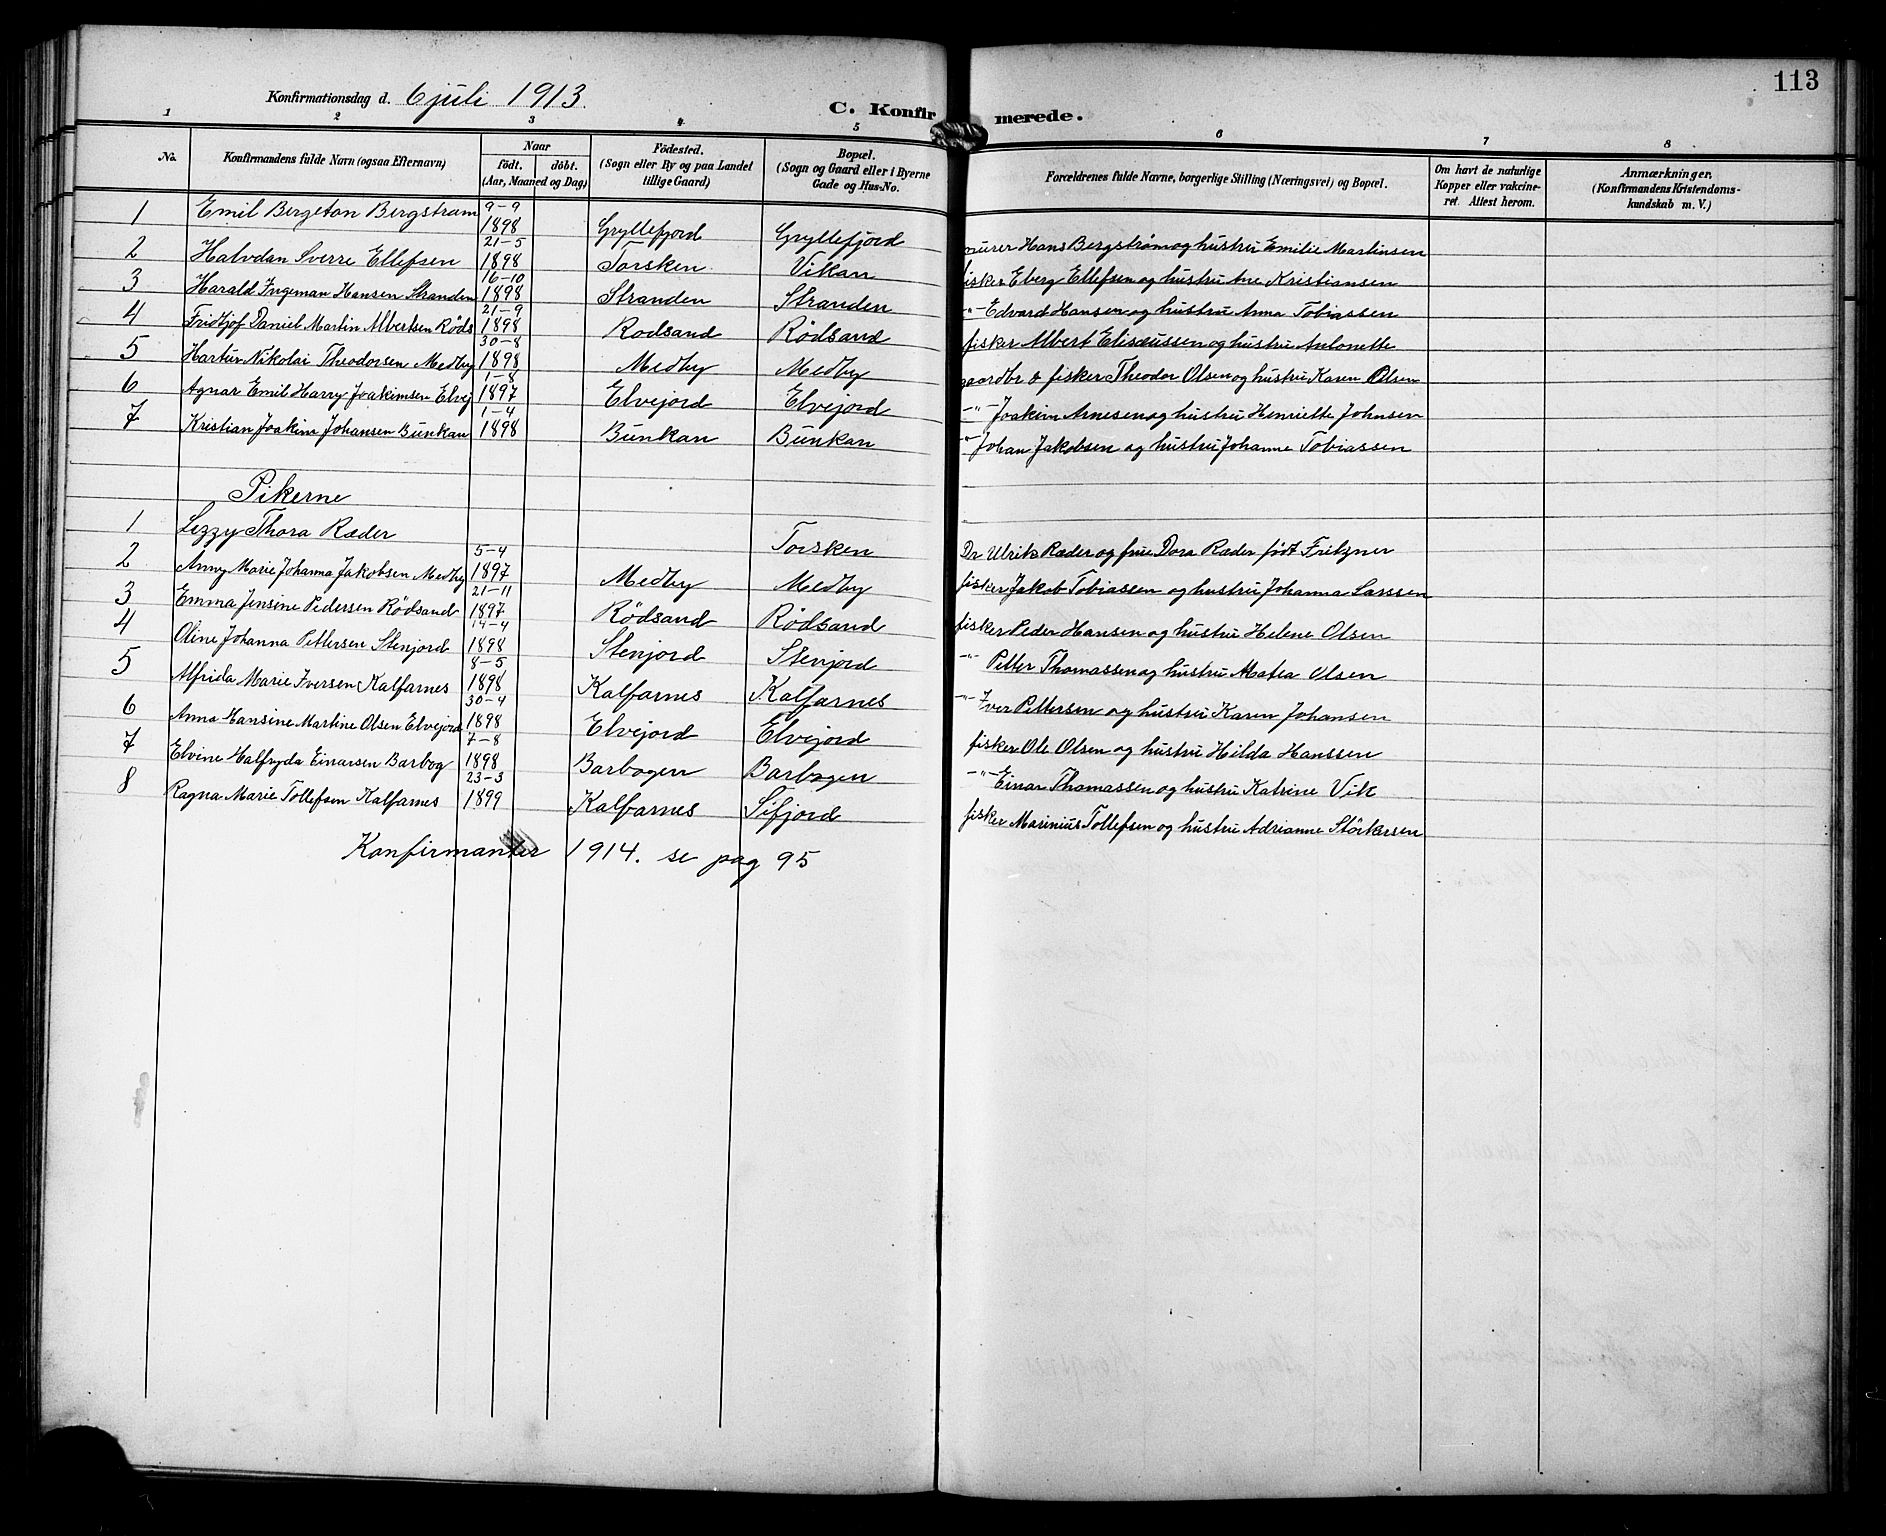 113
Konfirmationsdag d. 6 juli 1913.
C. Konfirmerede.
1 2 3 4 5 6 7 8
No. Konfirmandens fulde Navn (ogsaa Efternavn) Naar født. døbt. (Aar, Maaned og Dag) Födested. (Sogn eller By og paa Landet tillige Gaard) Bopæl. (Sogn og Gaard eller i Byerne Gade og Hus-No. Forældrenes fulde Navne, borgerlige Stilling (Næringsvei) og Bopæl. Om havt de naturlige Kopper eller vakcineret. Attest herom. Anmærkninger, (Konfirmandens Kristendomskundskab m. V.)
1 Emil Bergeton Bergstram 9-9 1898 Gryllefjord Gryllefjord murer Hans Bergstrøm og hustru Emilie Martinsen
2 Halvdan Sverre Ellefsen 21-5 1898 Torsken Vikan fisker Eberg Ellefsen og hustru Ane Kristiansen
3 Harald Ingeman Hansen Stranden 16-10 1898 Stranden Stranden -"- Edvard Hansen og hustru Anna Tobiassen
4 Fridtjof Daniel Martin Albertsen Røds 21-9 1898 Rodsand Rødsand fisker Albert Elisæussen og hustru Antonette
5 Hartur Nikolai Theodorsen Medby 30-8 1898 Medby Medby gaardbr & fisker Theodor Olsen og hustru Karen Olsen
6 Agnar Emil Harry Joakimsen Elvej 1-8 1897 Elvejord Elvejord -"- Joakim Arnesen og hustru Henriette Johnsen
7 Kristian Joakim Johansen Bunkan 1-4 1898 Bunkan Bunkan -"- Johan Jakobsen og hustru Johanne Tobiassen
Pikerne
1 Lezzy Thora Ræder Torsken Dr Ulrik Ræder og frue Dora Ræder født Fritzner
2 Anny Marie Johanna Jakobsen Medby 5-4 1897 Medby Medby fisker Jakob Tobiassen og hustru Johanna Larssen
3 Emma Jensine Pedersen Rödsand 21-11 1897 Rödsand Rödsand fisker Peder Hansen og hustru Helene Olsen
4 Oline Johanna Pettersen Stenjord 14-4 1898 Stenjord Stenjord -"- Petter Thomassen og hustru Matea Olsen
5 Alfrida Marie Iversen Kalfarnes 8-5 1898 Kalfarnes Kalfarnes -"- Iver Pettersen og hustru Karen Johansen
6 Anna Hansine Martine Olsen Elvejord 30-4 1898 Elvejord Elvejord fisker Ole Olsen og hustru Hilda Hanssen
7 Elvine Halfryda Einarsen Barbog 7-8 1898 Barbogen Barbogen -"- Einar Thomassen og hustru Katrine Vik
8 Ragna Marie Tollefsen Kalfarnes 23-3 1899 Kalfarnes Sifjord fisker Marinius Tollefsen og hustru Adrianne Störkersen
Konfirmanter 1914. se pag 95